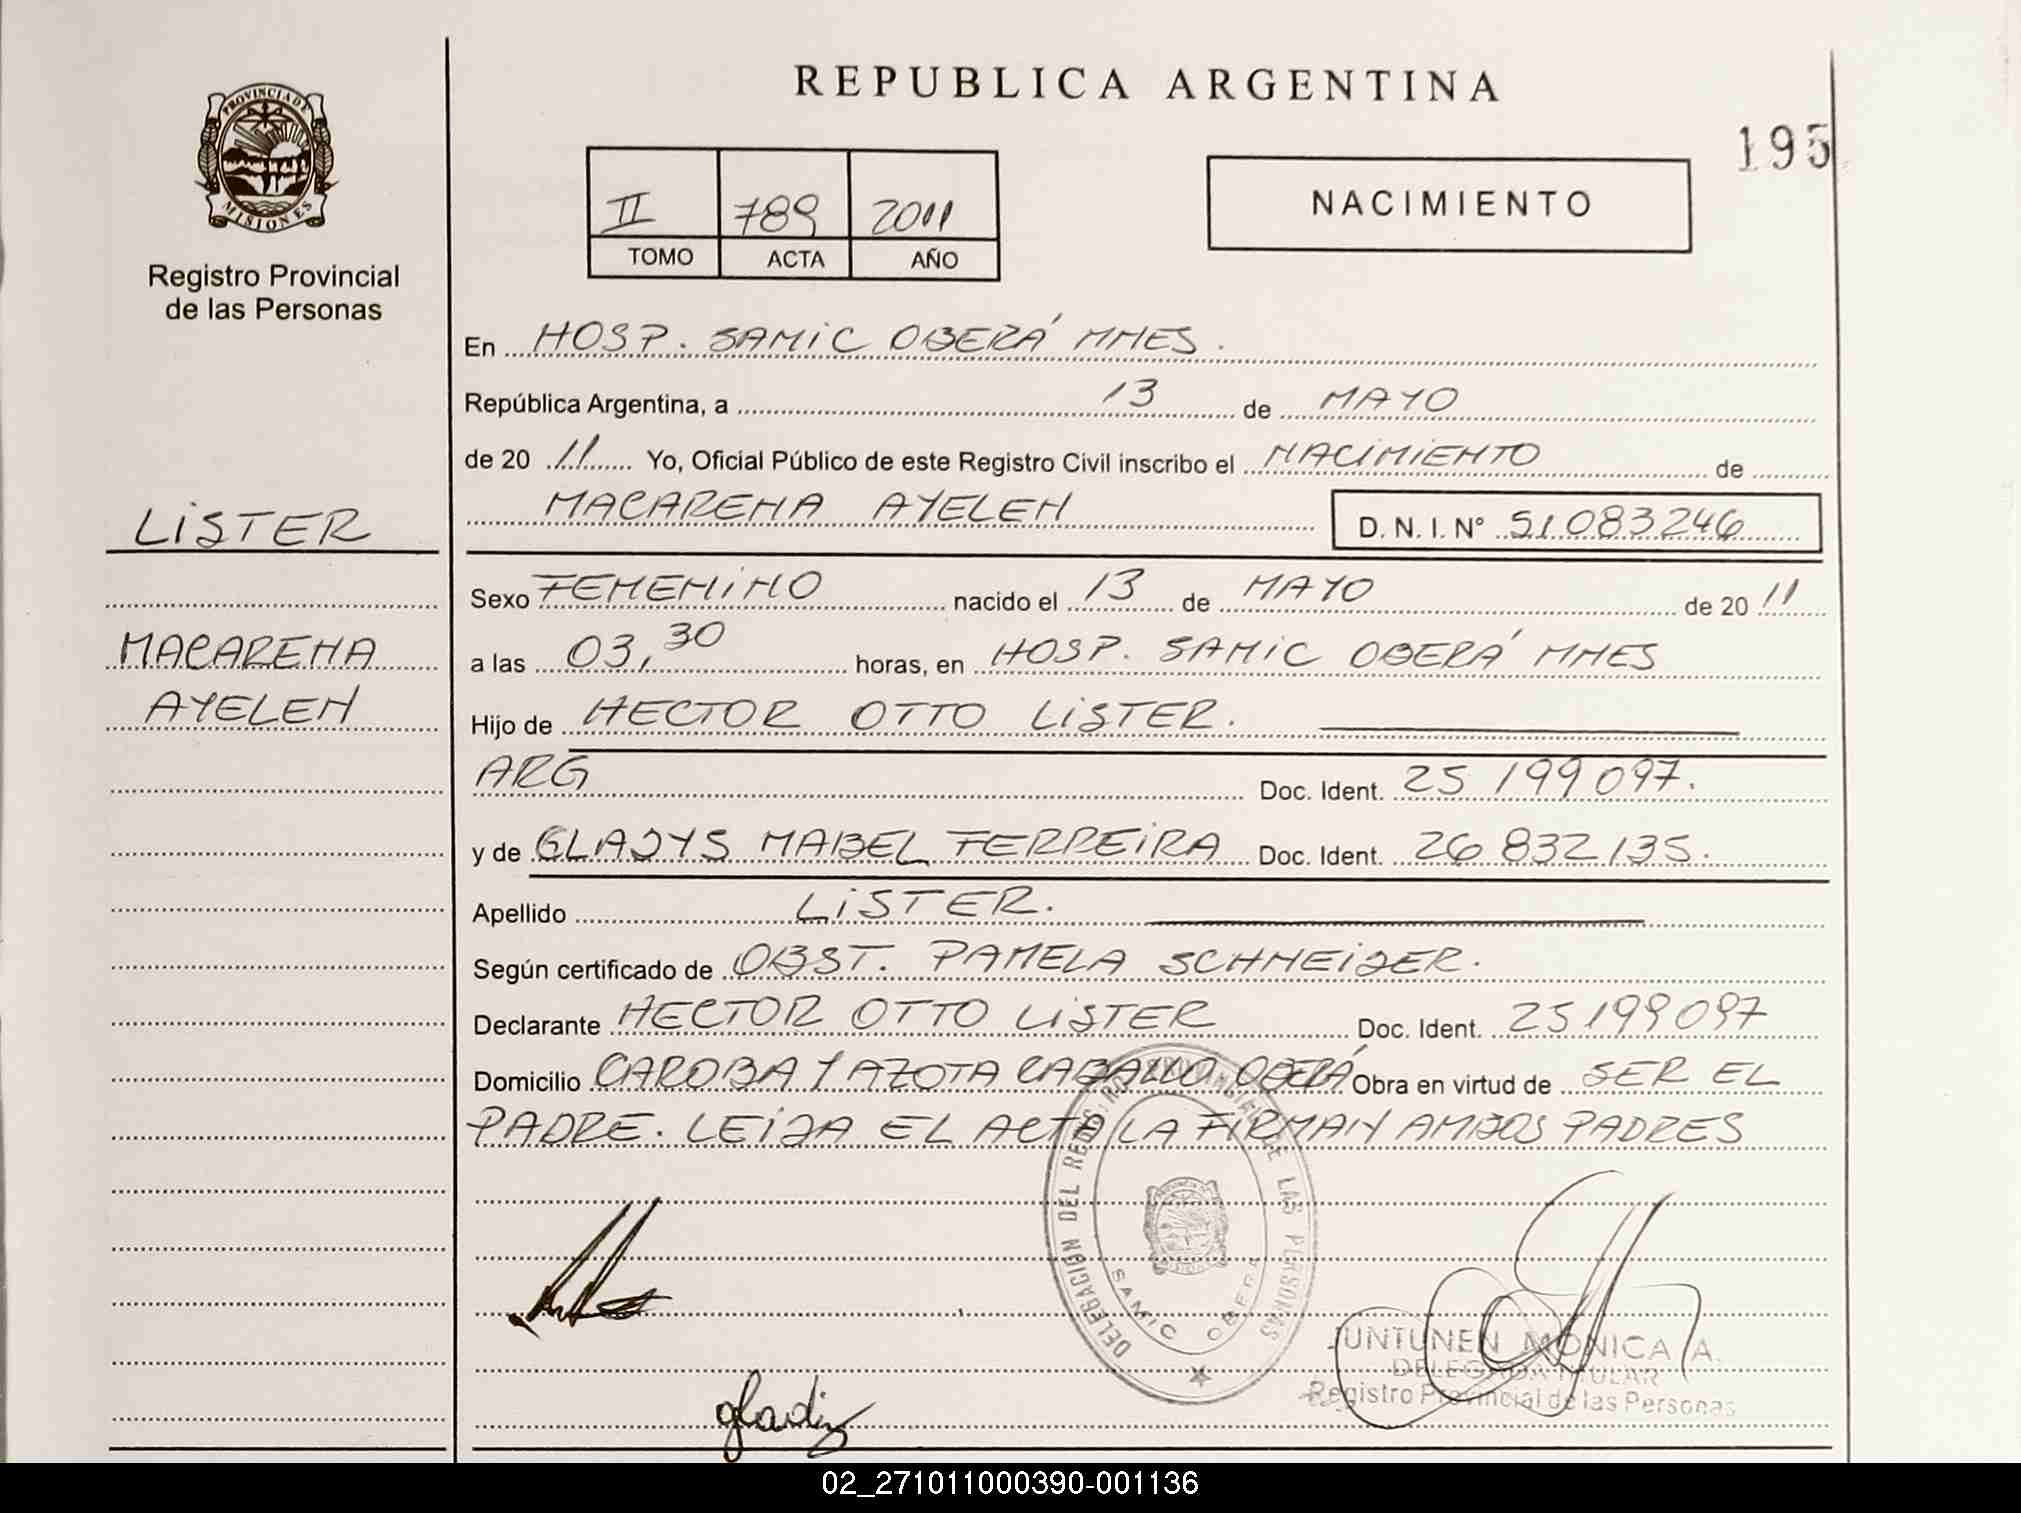 REPUBLICA ARGENTINA
195
PROVINCIA DE
MISIONES
Registro Provincial
de las Personas
II 789 2011
TOMO ACTA AÑO
NACIMIENTO
En HOSP. SAMIC OBERÁ MNES.
República Argentina, a 13 de MAYO
de 20 11 Yo, Oficial Público de este Registro Civil inscribo el NACIMIENTO de
MACARENA AYELEN D. N. I. Nº 51.083246
LISTER
Sexo FEMENINO nacido el 13 de MAYO de 20 11
MACARENA
a las 03,30 horas, en HOSP. SAMIC OBERÁ MNES
AYELEN
Hijo de HECTOR OTTO LISTER.
ARG Doc. Ident. 25 199 097.
y de GLADYS MABEL FERREIRA Doc. Ident. 26 832 135.
Apellido LISTER.
Según certificado de OBST. PAMELA SCHNEIDER.
Declarante HECTOR OTTO LISTER Doc. Ident. 25199097
Domicilio CAROBA Y AZOTA CABALLO OBERÁ Obra en virtud de SER EL
PADRE. LEIDA EL ACTA LA FIRMAN AMBOS PADRES
DELEGACIÓN DEL REGISTRO PROVINCIAL DE LAS PERSONAS
SAMIC OBERA
JUNTUNEN MONICA A.
DELEGADA TITULAR
Registro Provincial de las Personas
gladis
02_271011000390-001136